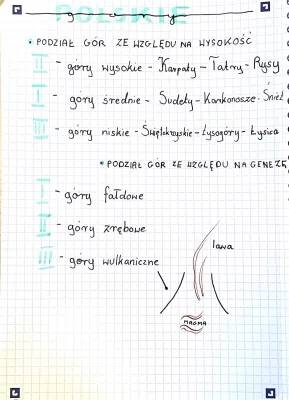 POLSKIE
góry
• PODZIAŁ GÓR ZE WZGLĘDU NA WYSOKOŚĆ
II - góry wysokie - Karpaty - Tatry - Rysy
I - góry średnie - Sudety - Karkonosze - Śnież
III - góry niskie - Świętokrzyskie - Łysogóry - Łysica
• PODZIAŁ GÓR ZE WZGLĘDU NA GENEZĘ
I - góry fałdowe
II - góry zrębowe
III - góry wulkaniczne
lawa
MAGMA